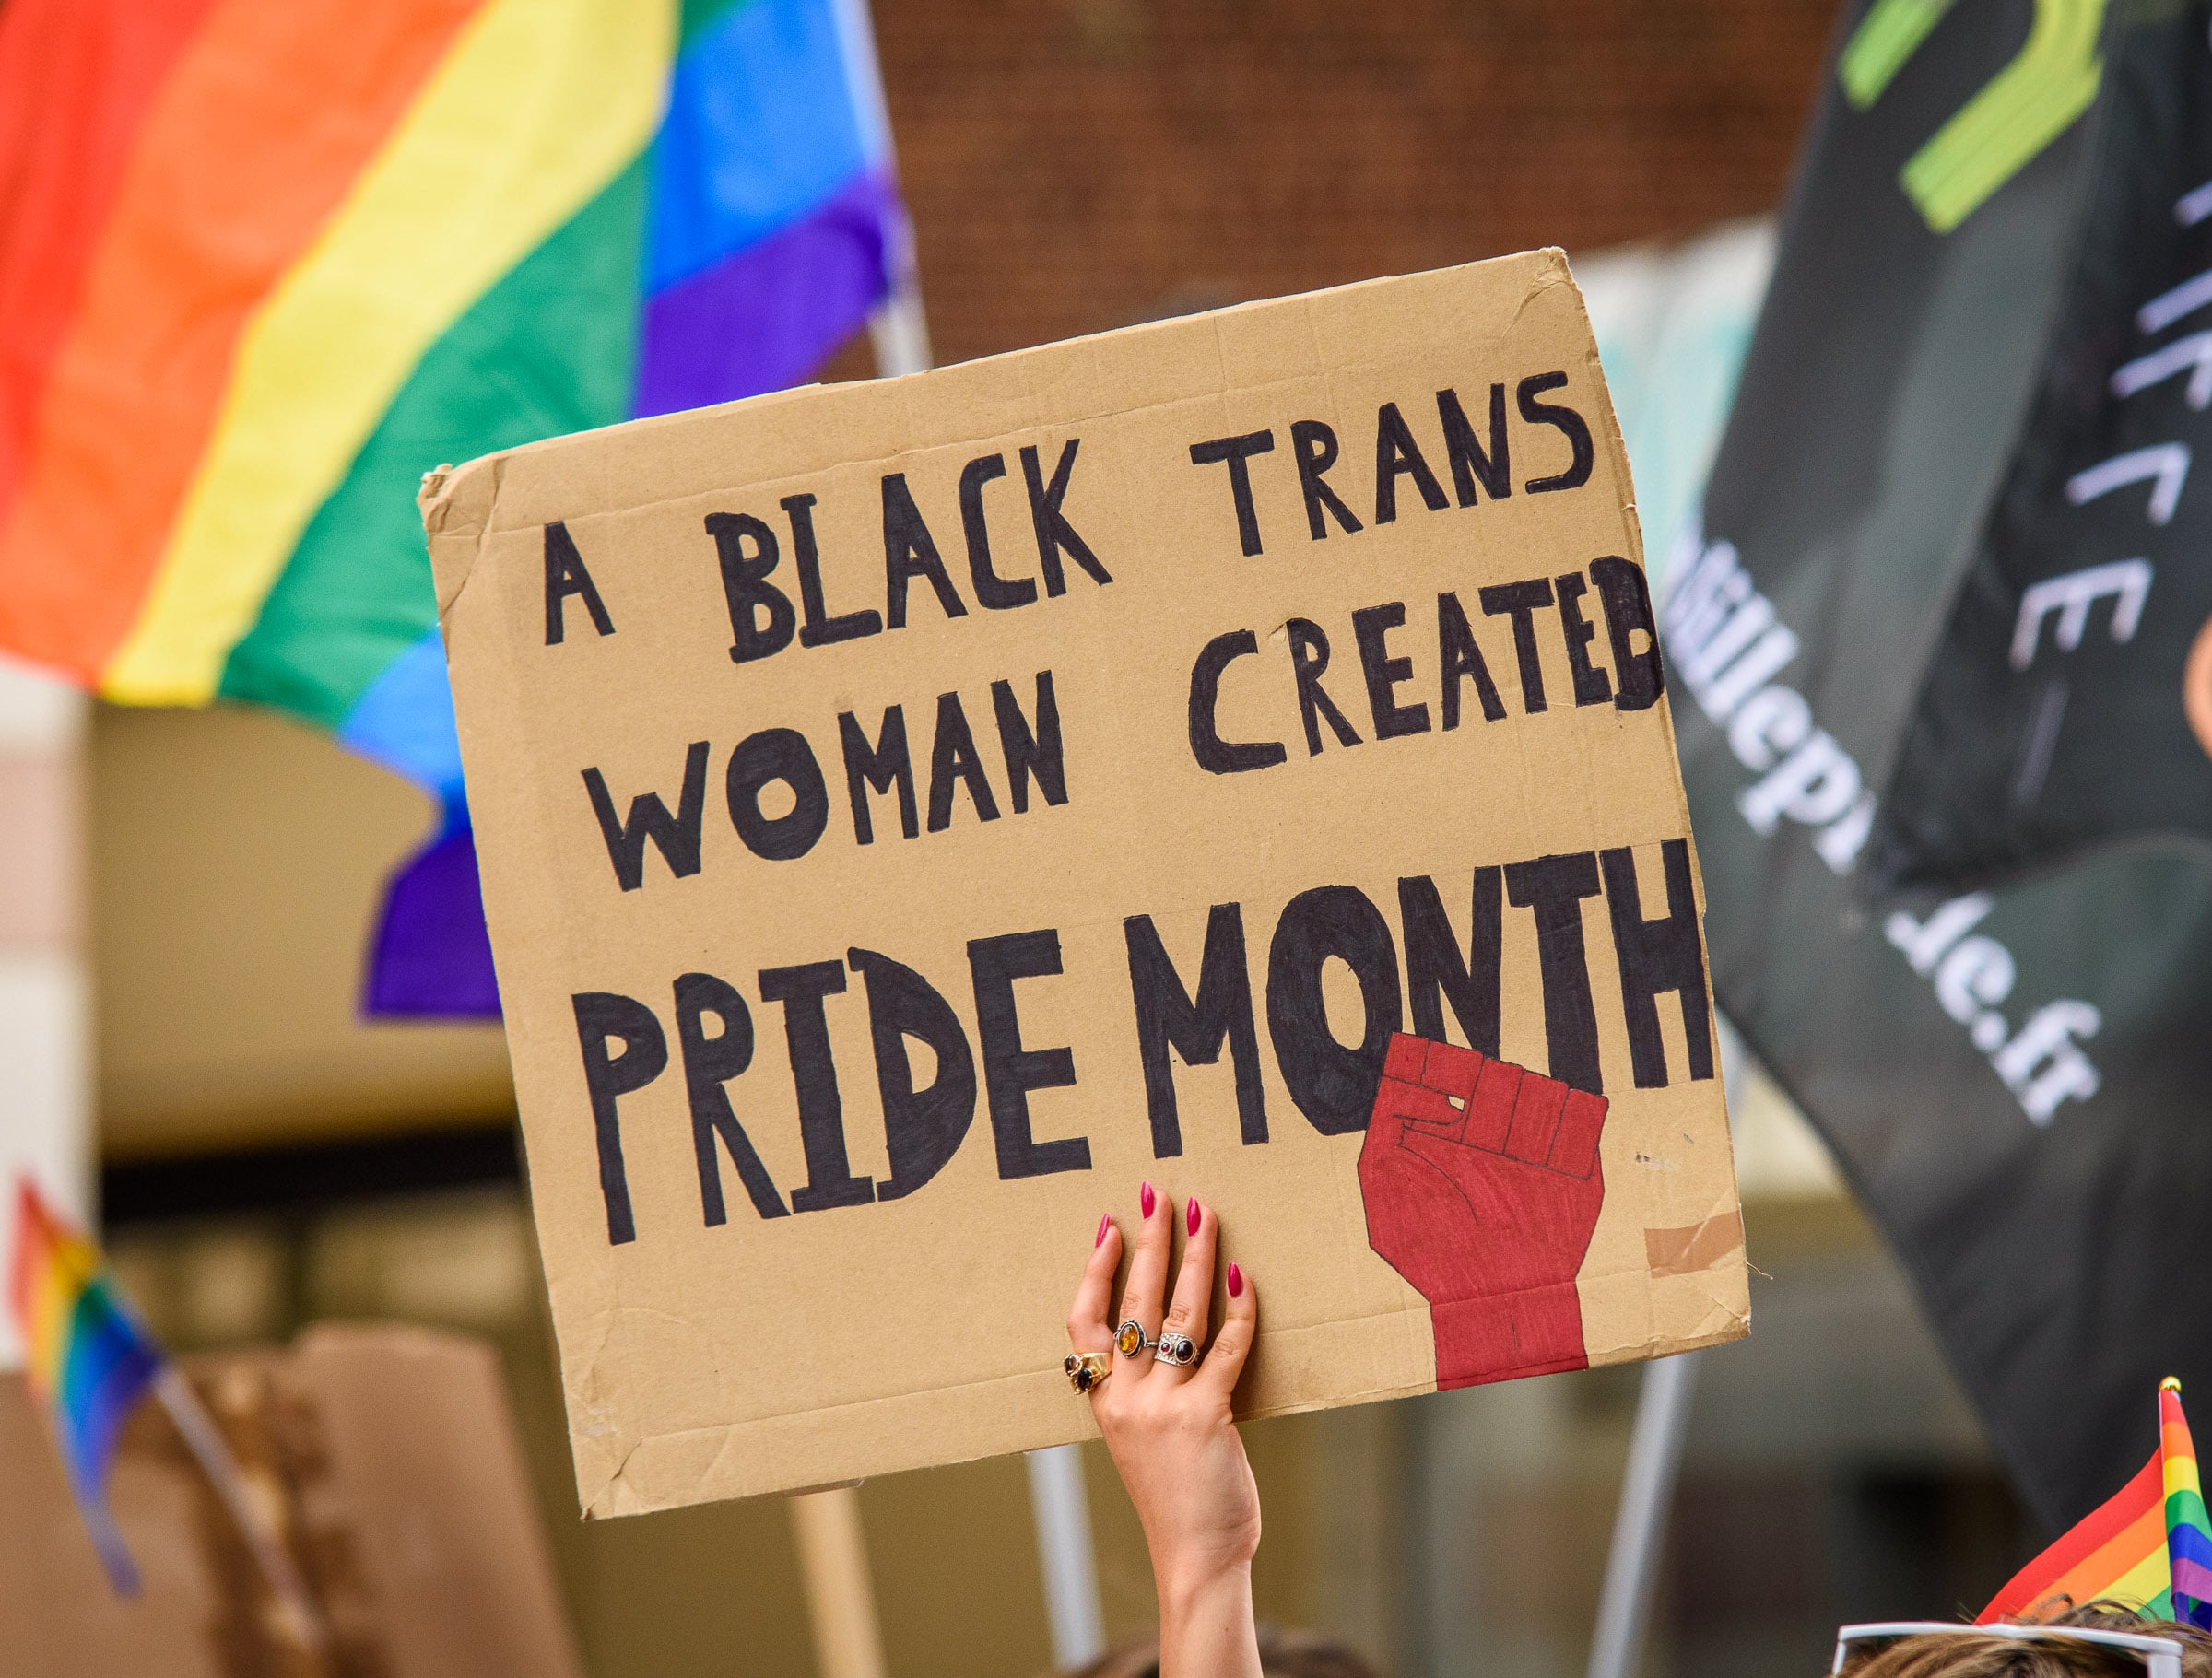 A BLACK TRANS
WOMAN CREATED
PRIDE MONTH